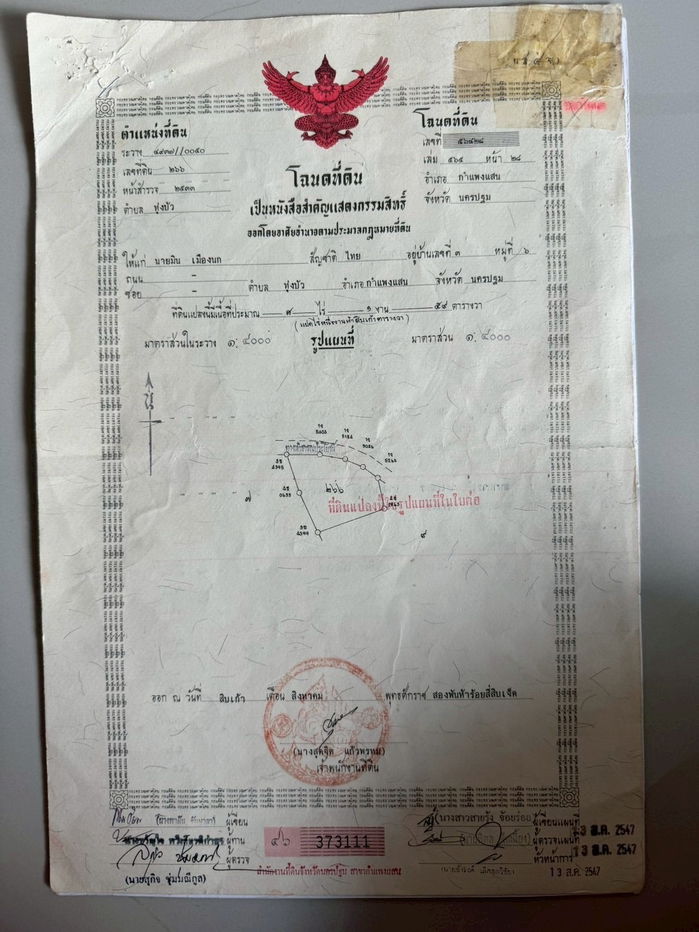 (น.ส. ๔ จ.)
ตำแหน่งที่ดิน
ระวาง ๔๙๓๗//๐๐๕๐
เลขที่ดิน ๒๖๖
หน้าสำรวจ ๒๕๓๓
ตำบล ทุ่งบัว
โฉนดที่ดิน
เลขที่ ๕๖๔๒๘
เล่ม ๕๖๕ หน้า ๒๘
อำเภอ กำแพงแสน
จังหวัด นครปฐม
โฉนดที่ดิน
เป็นหนังสือสำคัญแสดงกรรมสิทธิ์
ออกโดยอาศัยอำนาจตามประมวลกฎหมายที่ดิน
ให้แก่ นายมิน เมืองนก สัญชาติ ไทย อยู่บ้านเลขที่ ๓ หมู่ที่ ๖
ถนน - ตำบล ทุ่งบัว อำเภอ กำแพงแสน จังหวัด นครปฐม
ซอย -
ที่ดินแปลงนี้มีเนื้อที่ประมาณ ๘ ไร่ ๑ งาน ๕๙ ตารางวา
(แปดไร่หนึ่งงานห้าสิบเก้าตารางวา)
มาตราส่วนในระวาง ๑:๔๐๐๐ รูปแผนที่ มาตราส่วน ๑:๔๐๐๐
น
๒๖๖
๗
ที่ดินแปลงนี้มีรูปแผนที่ในใบต่อ
๙
ออก ณ วันที่ สิบเก้า เดือน สิงหาคม พุทธศักราช สองพันห้าร้อยสี่สิบเจ็ด
(นางสุดจิต แก้วพรหม)
เจ้าพนักงานที่ดิน
ผู้เขียน
(นางสาวสายรุ้ง จ้อยร่อย) ผู้เขียนแผนที่
ผู้ทาน
373111
ผู้ตรวจแผนที่ 13 ส.ค. 2547
ผู้ตรวจ
หัวหน้าการ 13 ส.ค. 2547
สำนักงานที่ดินจังหวัดนครปฐม สาขากำแพงแสน